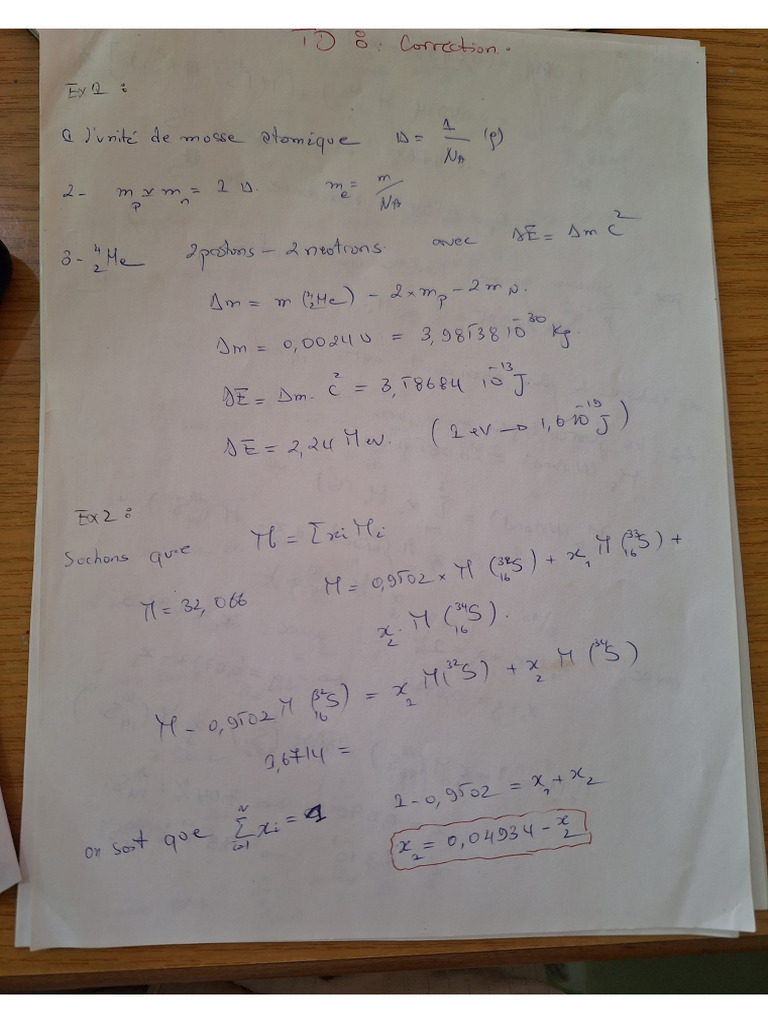 TD 8: Correction.
Ex1:
l'unité de masse atomique U = 1/N_A (g)
2- m_p ≈ m_n = 1 U. m_e = m/N_A
3- ⁴₂He 2 protons - 2 neutrons. avec ΔE = Δm C²
Δm = m(⁴₂He) - 2×m_p - 2 m_N.
Δm = 0,0024 U = 3,98538 10⁻³⁰ Kg.
ΔE = Δm. C² = 3,58684 10⁻¹³ J.
ΔE = 2,24 Mev. (1 eV → 1,6 10⁻¹⁹ J)
Ex2:
Sachons que M = Σxi Mi
M = 32,066 M = 0,9502 × M(³²₁₆S) + x₁ M(³³₁₆S) +
x₂. M(³⁴₁₆S).
M - 0,9502 M(³²₁₆S) = x₂ M(³²S) + x₂ M(³⁴S)
1,6714 =
1 - 0,9502 = x₁ + x₂
on sait que Σ xi = 1
x₂ = 0,04934 - x₂